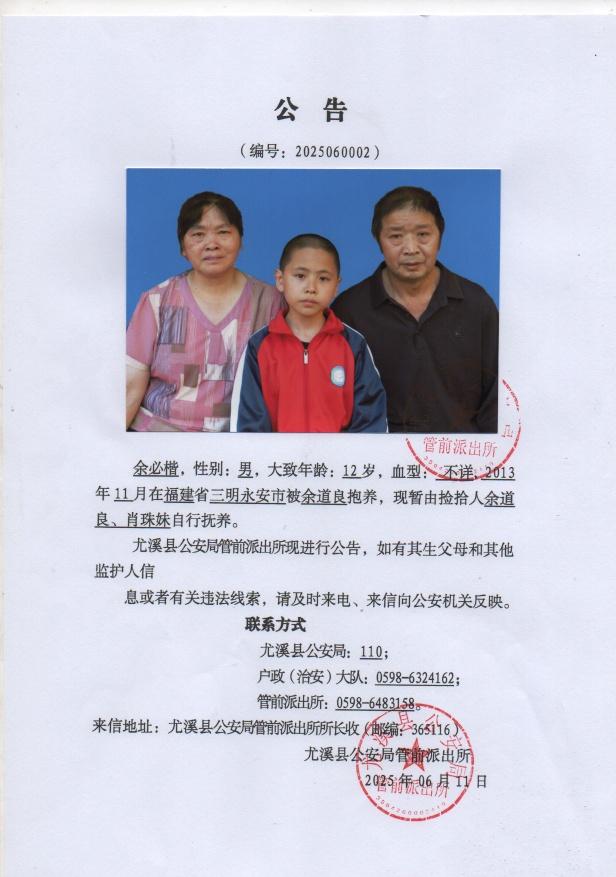 公 告
（编号：2025060002）
管前派出所
余必楷，性别：男，大致年龄：12岁，血型：不详，2013
年11月在福建省三明永安市被余道良抱养，现暂由捡拾人余道
良、肖珠妹自行抚养。
尤溪县公安局管前派出所现进行公告，如有其生父母和其他
监护人信
息或者有关违法线索，请及时来电、来信向公安机关反映。
联系方式
尤溪县公安局：110；
户政（治安）大队：0598-6324162；
管前派出所：0598-6483158。
来信地址：尤溪县公安局管前派出所所长收（邮编：365116）
尤溪县公安局管前派出所
2025年06月11日
尤溪县公安局
管前派出所